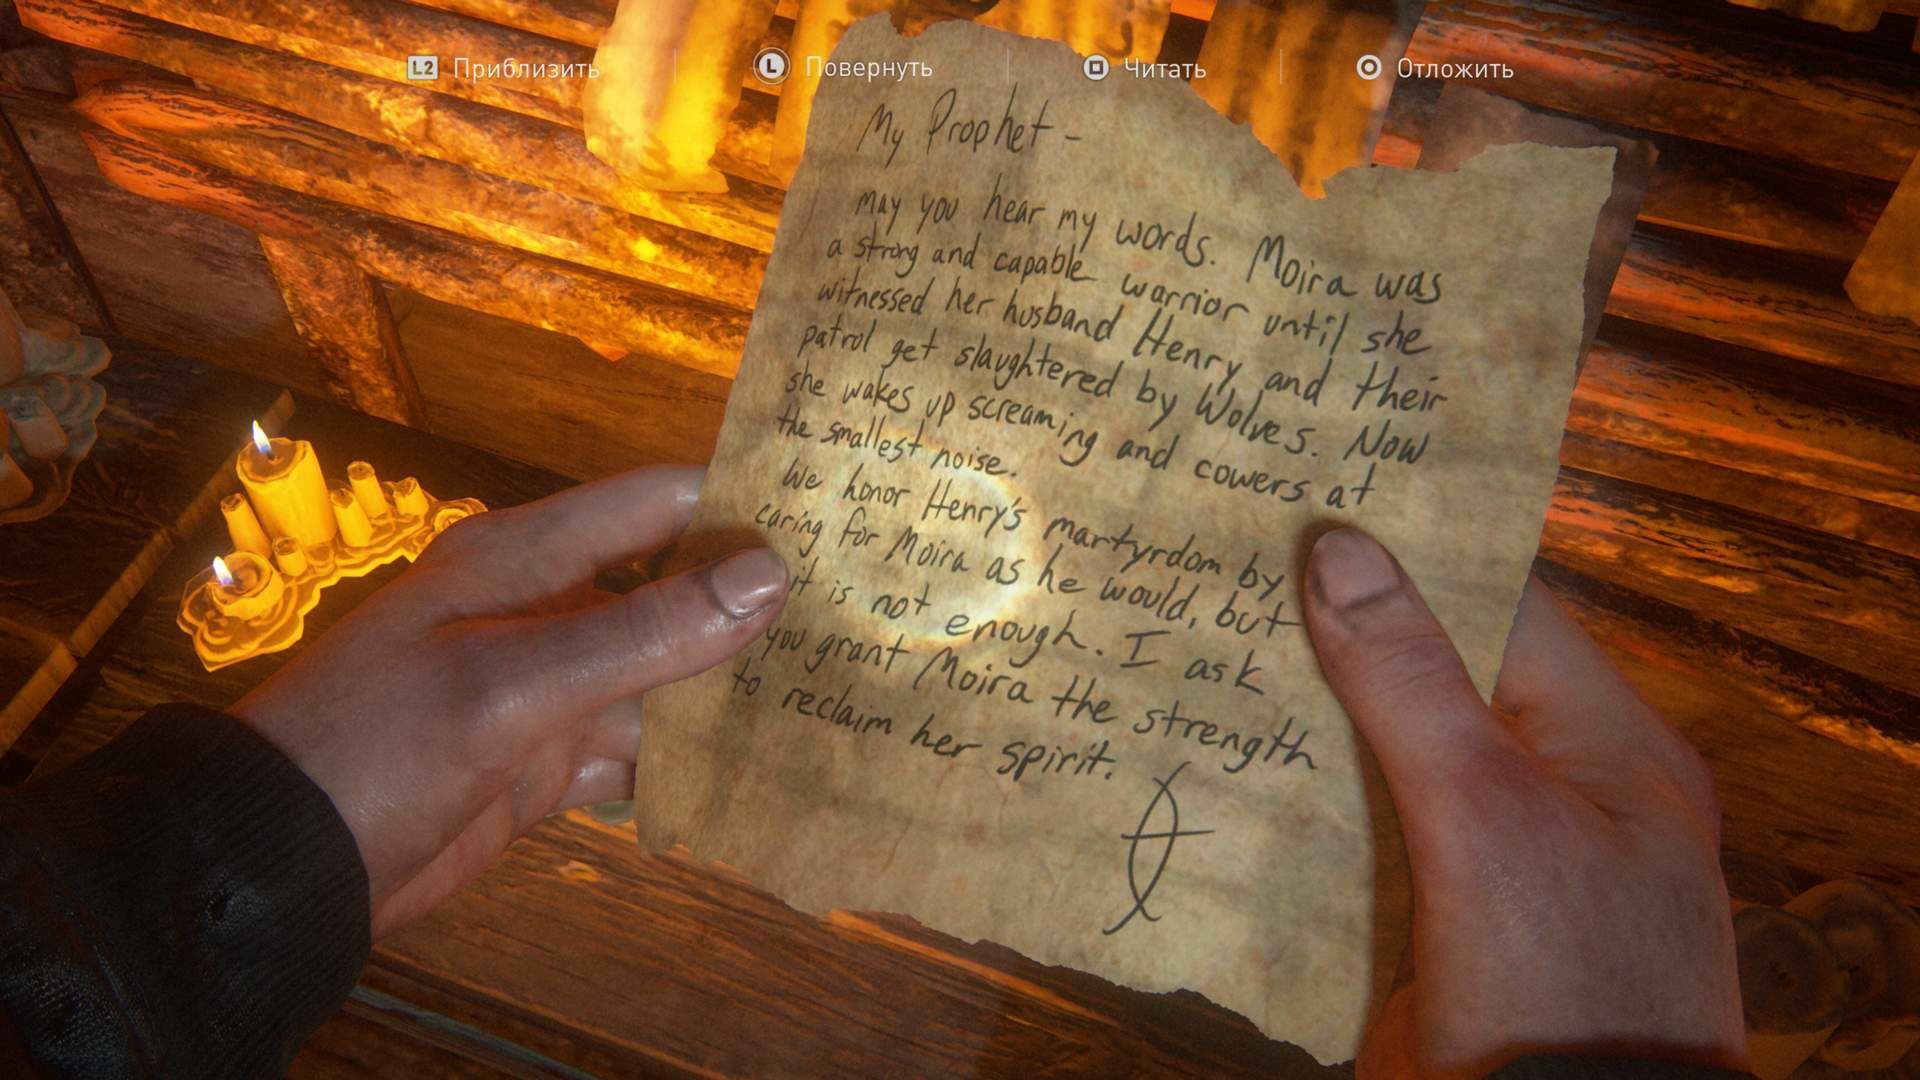 L2 Приблизить L Повернуть Читать Отложить
My Prophet -
may you hear my words. Moira was
a strong and capable warrior until she
witnessed her husband Henry and their
patrol get slaughtered by Wolves. Now
she wakes up screaming and cowers at
the smallest noise.
We honor Henry's martyrdom by
caring for Moira as he would, but
it is not enough. I ask
you grant Moira the strength
to reclaim her spirit.